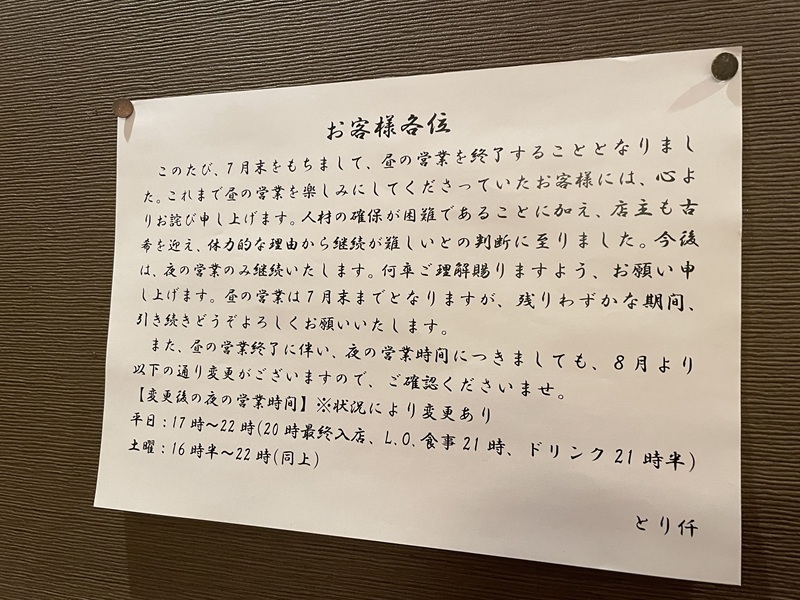 お客様各位
このたび、7月末をもちまして、昼の営業を終了することとなりまし
た。これまで昼の営業を楽しみにしてくださっていたお客様には、心よ
りお詫び申し上げます。人材の確保が困難であることに加え、店主も古
希を迎え、体力的な理由から継続が難しいとの判断に至りました。今後
は、夜の営業のみ継続いたします。何卒ご理解賜りますよう、お願い申
し上げます。昼の営業は7月末までとなりますが、残りわずかな期間、
引き続きどうぞよろしくお願いいたします。
また、昼の営業終了に伴い、夜の営業時間につきましても、8月より
以下の通り変更がございますので、ご確認くださいませ。
【変更後の夜の営業時間】※状況により変更あり
平日:17時~22時(20時最終入店、L.O.食事21時、ドリンク21時半)
土曜:16時半~22時(同上)
とり仟